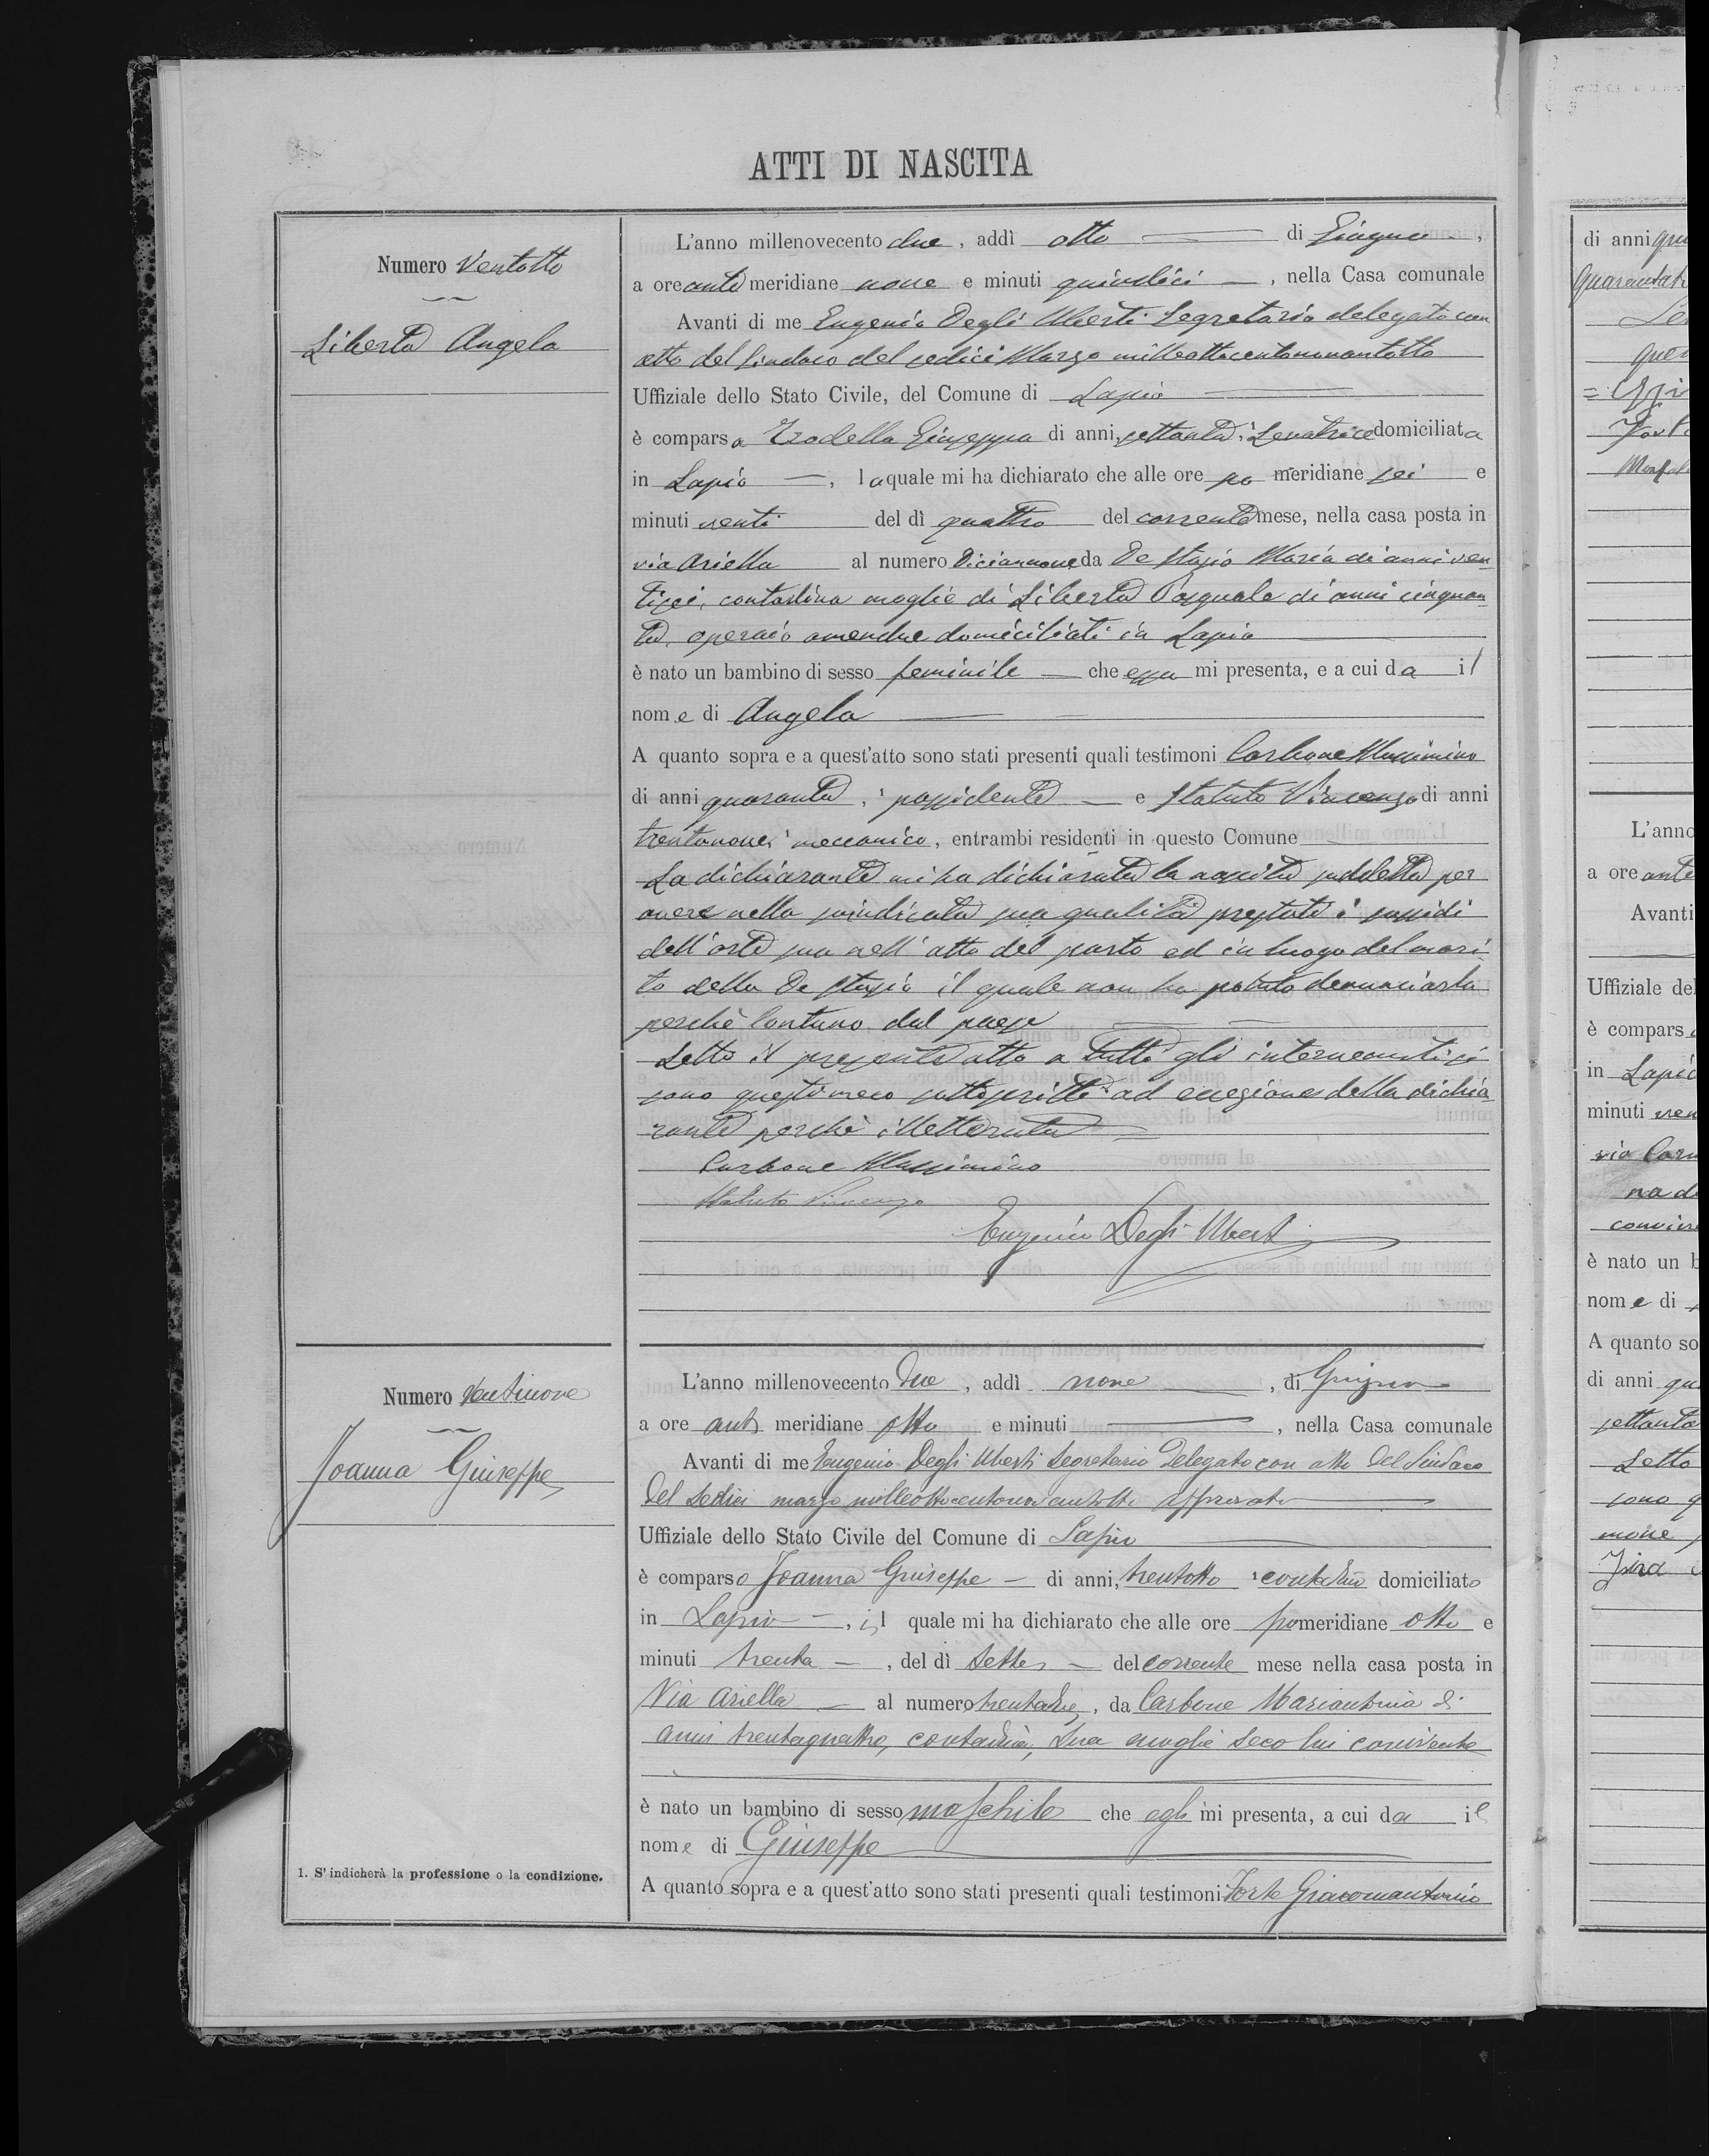 ATTI DI NASCITA
Numero Ventotto
Liberta Angela
L'anno millenovecento due, addì otto di Giugno,
a ore anti meridiane nove e minuti quindici, nella Casa comunale
Avanti di me Eugenio Degli Uberti Segretario delegato con
atto del Sindaco del sedici Marzo milleottocentonovantotto
Uffiziale dello Stato Civile, del Comune di Lapio
è comparsa Giuseppa di anni settanta, Levatrice domiciliata
in Lapio, la quale mi ha dichiarato che alle ore po meridiane sei e
minuti venti del dì quattro del corrente mese, nella casa posta in
via Ariella al numero diciannove da De Stasio Maria di anni ven
tisei, contadina moglie di Liberta Pasquale di anni cinquan
ta, operaio amendue domiciliati in Lapio
è nato un bambino di sesso feminile che essa mi presenta, e a cui da il
nome di Angela
A quanto sopra e a quest'atto sono stati presenti quali testimoni Carbone Massimino
di anni quaranta, possidente e Statuto Vincenzo di anni
trentanove, meccanico, entrambi residenti in questo Comune
La dichiarante mi ha dichiarata la nascita suddetta per
avere nella suindicata sua qualità prestati i sussidi
dell'arte sua nell'atto del parto ed in luogo del mari
to della De Stasio il quale non ha potuto denunciarla
perchè lontano dal paese
Letto il presente atto a tutti gli intervenuti si
sono questi meco sottoscritti ad eccezione della dichia
rante perchè illetterata
Carbone Massimino
Statuto Vincenzo
Eugenio Degli Uberti
Numero Ventinove
Joanna Giuseppe
L'anno millenovecento due, addì nove, di Giugno
a ore anti meridiane otto e minuti, nella Casa comunale
Avanti di me Eugenio Degli Uberti Segretario Delegato con atto del Sindaco
del sedici marzo milleottocentonovantotto approvato
Uffiziale dello Stato Civile del Comune di Lapio
è comparso Joanna Giuseppe di anni, trentotto contadino domiciliato
in Lapio, il quale mi ha dichiarato che alle ore pomeridiane otto e
minuti trenta, del dì sette del corrente mese nella casa posta in
Via Ariella al numero, da Carbone Mariantonia di
anni trentaquattro, contadina, sua moglie seco lui convivente
è nato un bambino di sesso maschile che egli mi presenta, a cui da il
nome di Giuseppe
1. S'indicherà la professione o la condizione.
A quanto sopra e a quest'atto sono stati presenti quali testimoni Forte Giacomantonio
di anni
L'anno
a ore ante
Avanti
Uffiziale del
è compars
in Lapio
minuti
via
è nato un b
nome di
A quanto so
di anni
settanta
Letto
sono q